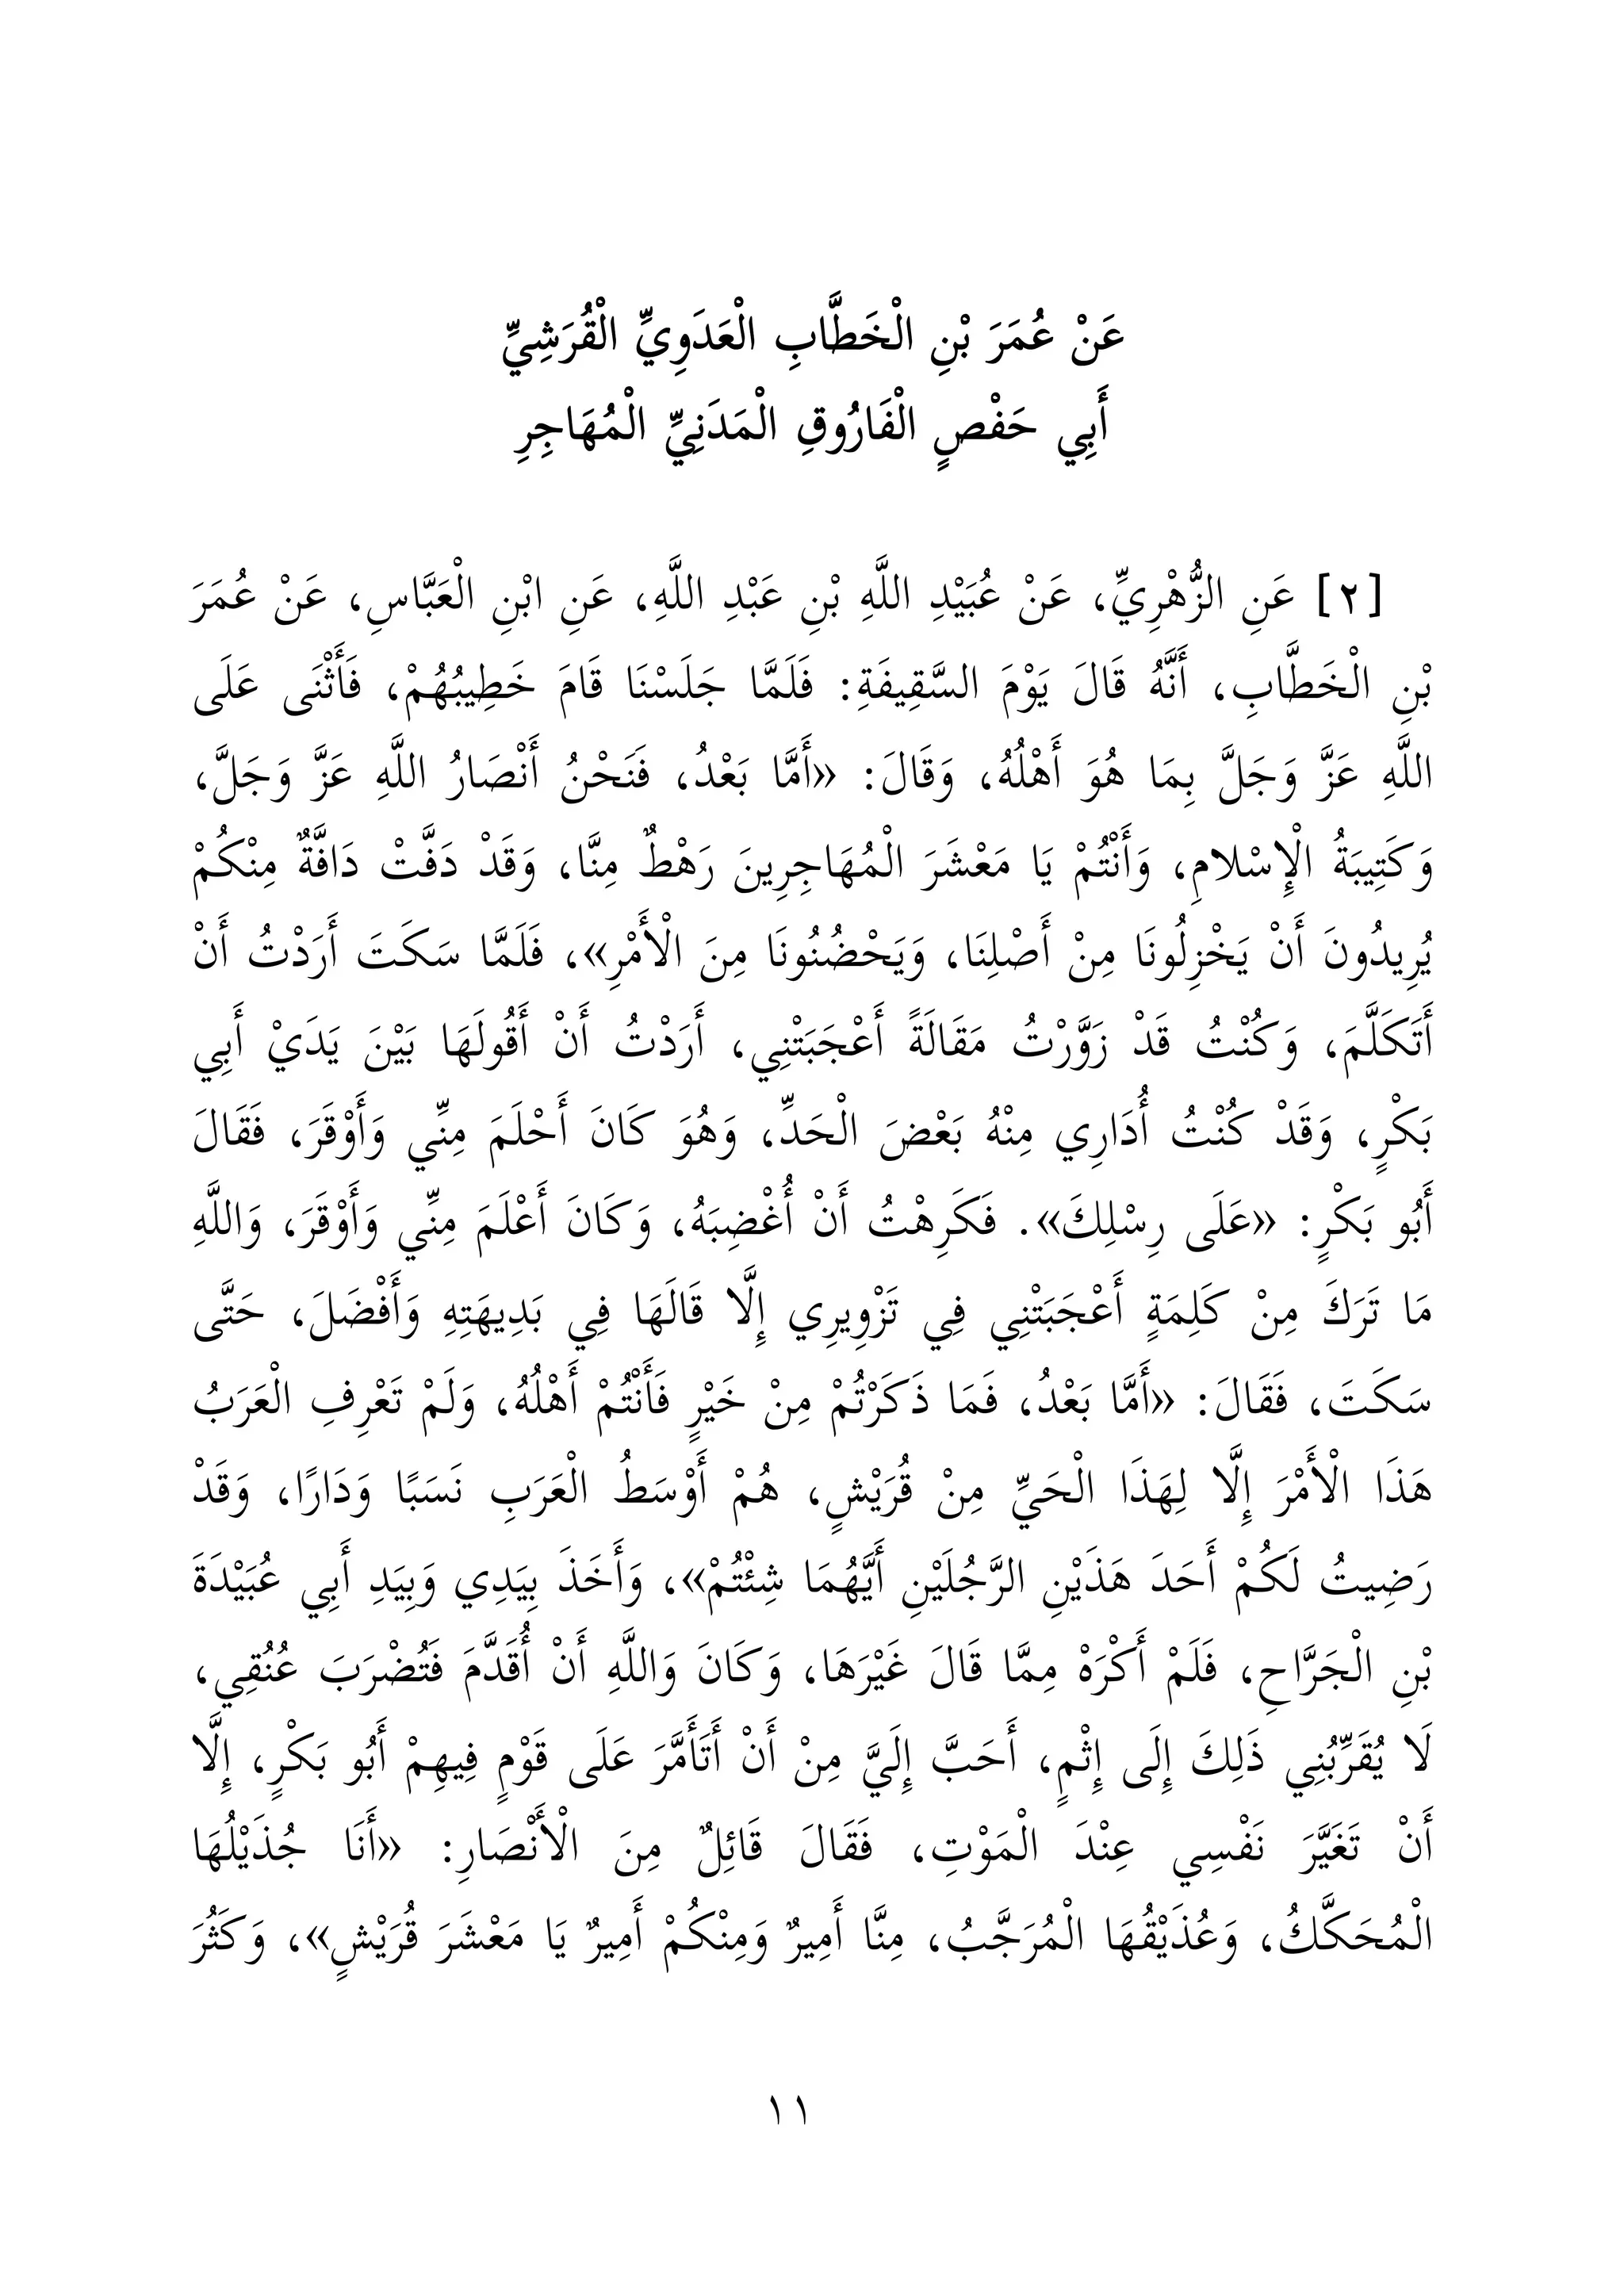 عَنْ عُمَرَ بْنِ الْخَطَّابِ الْعَدَوِيِّ الْقُرَشِيِّ
أَبِي حَفْصٍ الْفَارُوقِ الْمَدَنِيِّ الْمُهَاجِرِ
[٢] عَنِ الزُّهْرِيِّ، عَنْ عُبَيْدِ اللَّهِ بْنِ عَبْدِ اللَّهِ، عَنِ ابْنِ الْعَبَّاسِ، عَنْ عُمَرَ
بْنِ الْخَطَّابِ، أَنَّهُ قَالَ يَوْمَ السَّقِيفَةِ: فَلَمَّا جَلَسْنَا قَامَ خَطِيبُهُمْ، فَأَثْنَى عَلَى
اللَّهِ عَزَّ وَجَلَّ بِمَا هُوَ أَهْلُهُ، وَقَالَ: «أَمَّا بَعْدُ، فَنَحْنُ أَنْصَارُ اللَّهِ عَزَّ وَجَلَّ،
وَكَتِيبَةُ الْإِسْلامِ، وَأَنْتُمْ يَا مَعْشَرَ الْمُهَاجِرِينَ رَهْطٌ مِنَّا، وَقَدْ دَفَّتْ دَافَّةٌ مِنْكُمْ
يُرِيدُونَ أَنْ يَخْزِلُونَا مِنْ أَصْلِنَا، وَيَحْضُنُونَا مِنَ الْأَمْرِ»، فَلَمَّا سَكَتَ أَرَدْتُ أَنْ
أَتَكَلَّمَ، وَكُنْتُ قَدْ زَوَّرْتُ مَقَالَةً أَعْجَبَتْنِي، أَرَدْتُ أَنْ أَقُولَهَا بَيْنَ يَدَيْ أَبِي
بَكْرٍ، وَقَدْ كُنْتُ أُدَارِي مِنْهُ بَعْضَ الْحَدِّ، وَهُوَ كَانَ أَحْلَمَ مِنِّي وَأَوْقَرَ، فَقَالَ
أَبُو بَكْرٍ: «عَلَى رِسْلِكَ». فَكَرِهْتُ أَنْ أُغْضِبَهُ، وَكَانَ أَعْلَمَ مِنِّي وَأَوْقَرَ، وَاللَّهِ
مَا تَرَكَ مِنْ كَلِمَةٍ أَعْجَبَتْنِي فِي تَزْوِيرِي إِلَّا قَالَهَا فِي بَدِيهَتِهِ وَأَفْضَلَ، حَتَّى
سَكَتَ، فَقَالَ: «أَمَّا بَعْدُ، فَمَا ذَكَرْتُمْ مِنْ خَيْرٍ فَأَنْتُمْ أَهْلُهُ، وَلَمْ تَعْرِفِ الْعَرَبُ
هَذَا الْأَمْرَ إِلَّا لِهَذَا الْحَيِّ مِنْ قُرَيْشٍ، هُمْ أَوْسَطُ الْعَرَبِ نَسَبًا وَدَارًا، وَقَدْ
رَضِيتُ لَكُمْ أَحَدَ هَذَيْنِ الرَّجُلَيْنِ أَيَّهُمَا شِئْتُمْ»، وَأَخَذَ بِيَدِي وَبِيَدِ أَبِي عُبَيْدَةَ
بْنِ الْجَرَّاحِ، فَلَمْ أَكْرَهْ مِمَّا قَالَ غَيْرَهَا، وَكَانَ وَاللَّهِ أَنْ أُقَدَّمَ فَتُضْرَبَ عُنُقِي،
لَا يُقَرِّبُنِي ذَلِكَ إِلَى إِثْمٍ، أَحَبَّ إِلَيَّ مِنْ أَنْ أَتَأَمَّرَ عَلَى قَوْمٍ فِيهِمْ أَبُو بَكْرٍ، إِلَّا
أَنْ تَغَيَّرَ نَفْسِي عِنْدَ الْمَوْتِ، فَقَالَ قَائِلٌ مِنَ الْأَنْصَارِ: «أَنَا جُذَيْلُهَا
الْمُحَكَّكُ، وَعُذَيْقُهَا الْمُرَجَّبُ، مِنَّا أَمِيرٌ وَمِنْكُمْ أَمِيرٌ يَا مَعْشَرَ قُرَيْشٍ»، وَكَثُرَ
١١